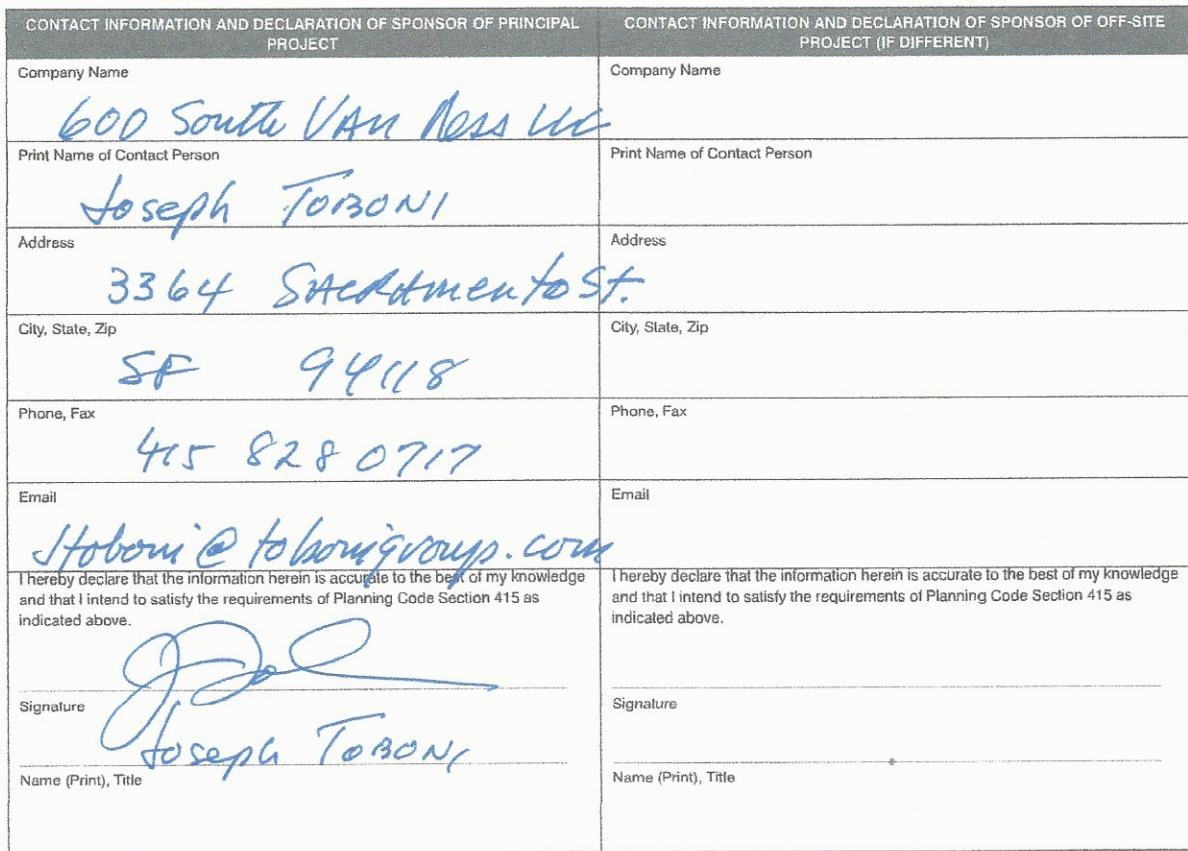 CONTACT INFORMATION AND DECLARATION OF SPONSOR OF PRINCIPAL
PROJECT
Company Name
600 South Van Ness LLC
Print Name of Contact Person
Joseph TOBONI
Address
3364 Sacramento St.
City, State, Zip
SF 94118
Phone, Fax
415 828 0717
Email
Jtoboni@tobonigroup.com
I hereby declare that the information herein is accurate to the best of my knowledge
and that I intend to satisfy the requirements of Planning Code Section 415 as
indicated above.
Signature
Joseph TOBONI
Name (Print), Title
CONTACT INFORMATION AND DECLARATION OF SPONSOR OF OFF-SITE
PROJECT (IF DIFFERENT)
Company Name
Print Name of Contact Person
Address
City, State, Zip
Phone, Fax
Email
I hereby declare that the information herein is accurate to the best of my knowledge
and that I intend to satisfy the requirements of Planning Code Section 415 as
indicated above.
Signature
Name (Print), Title